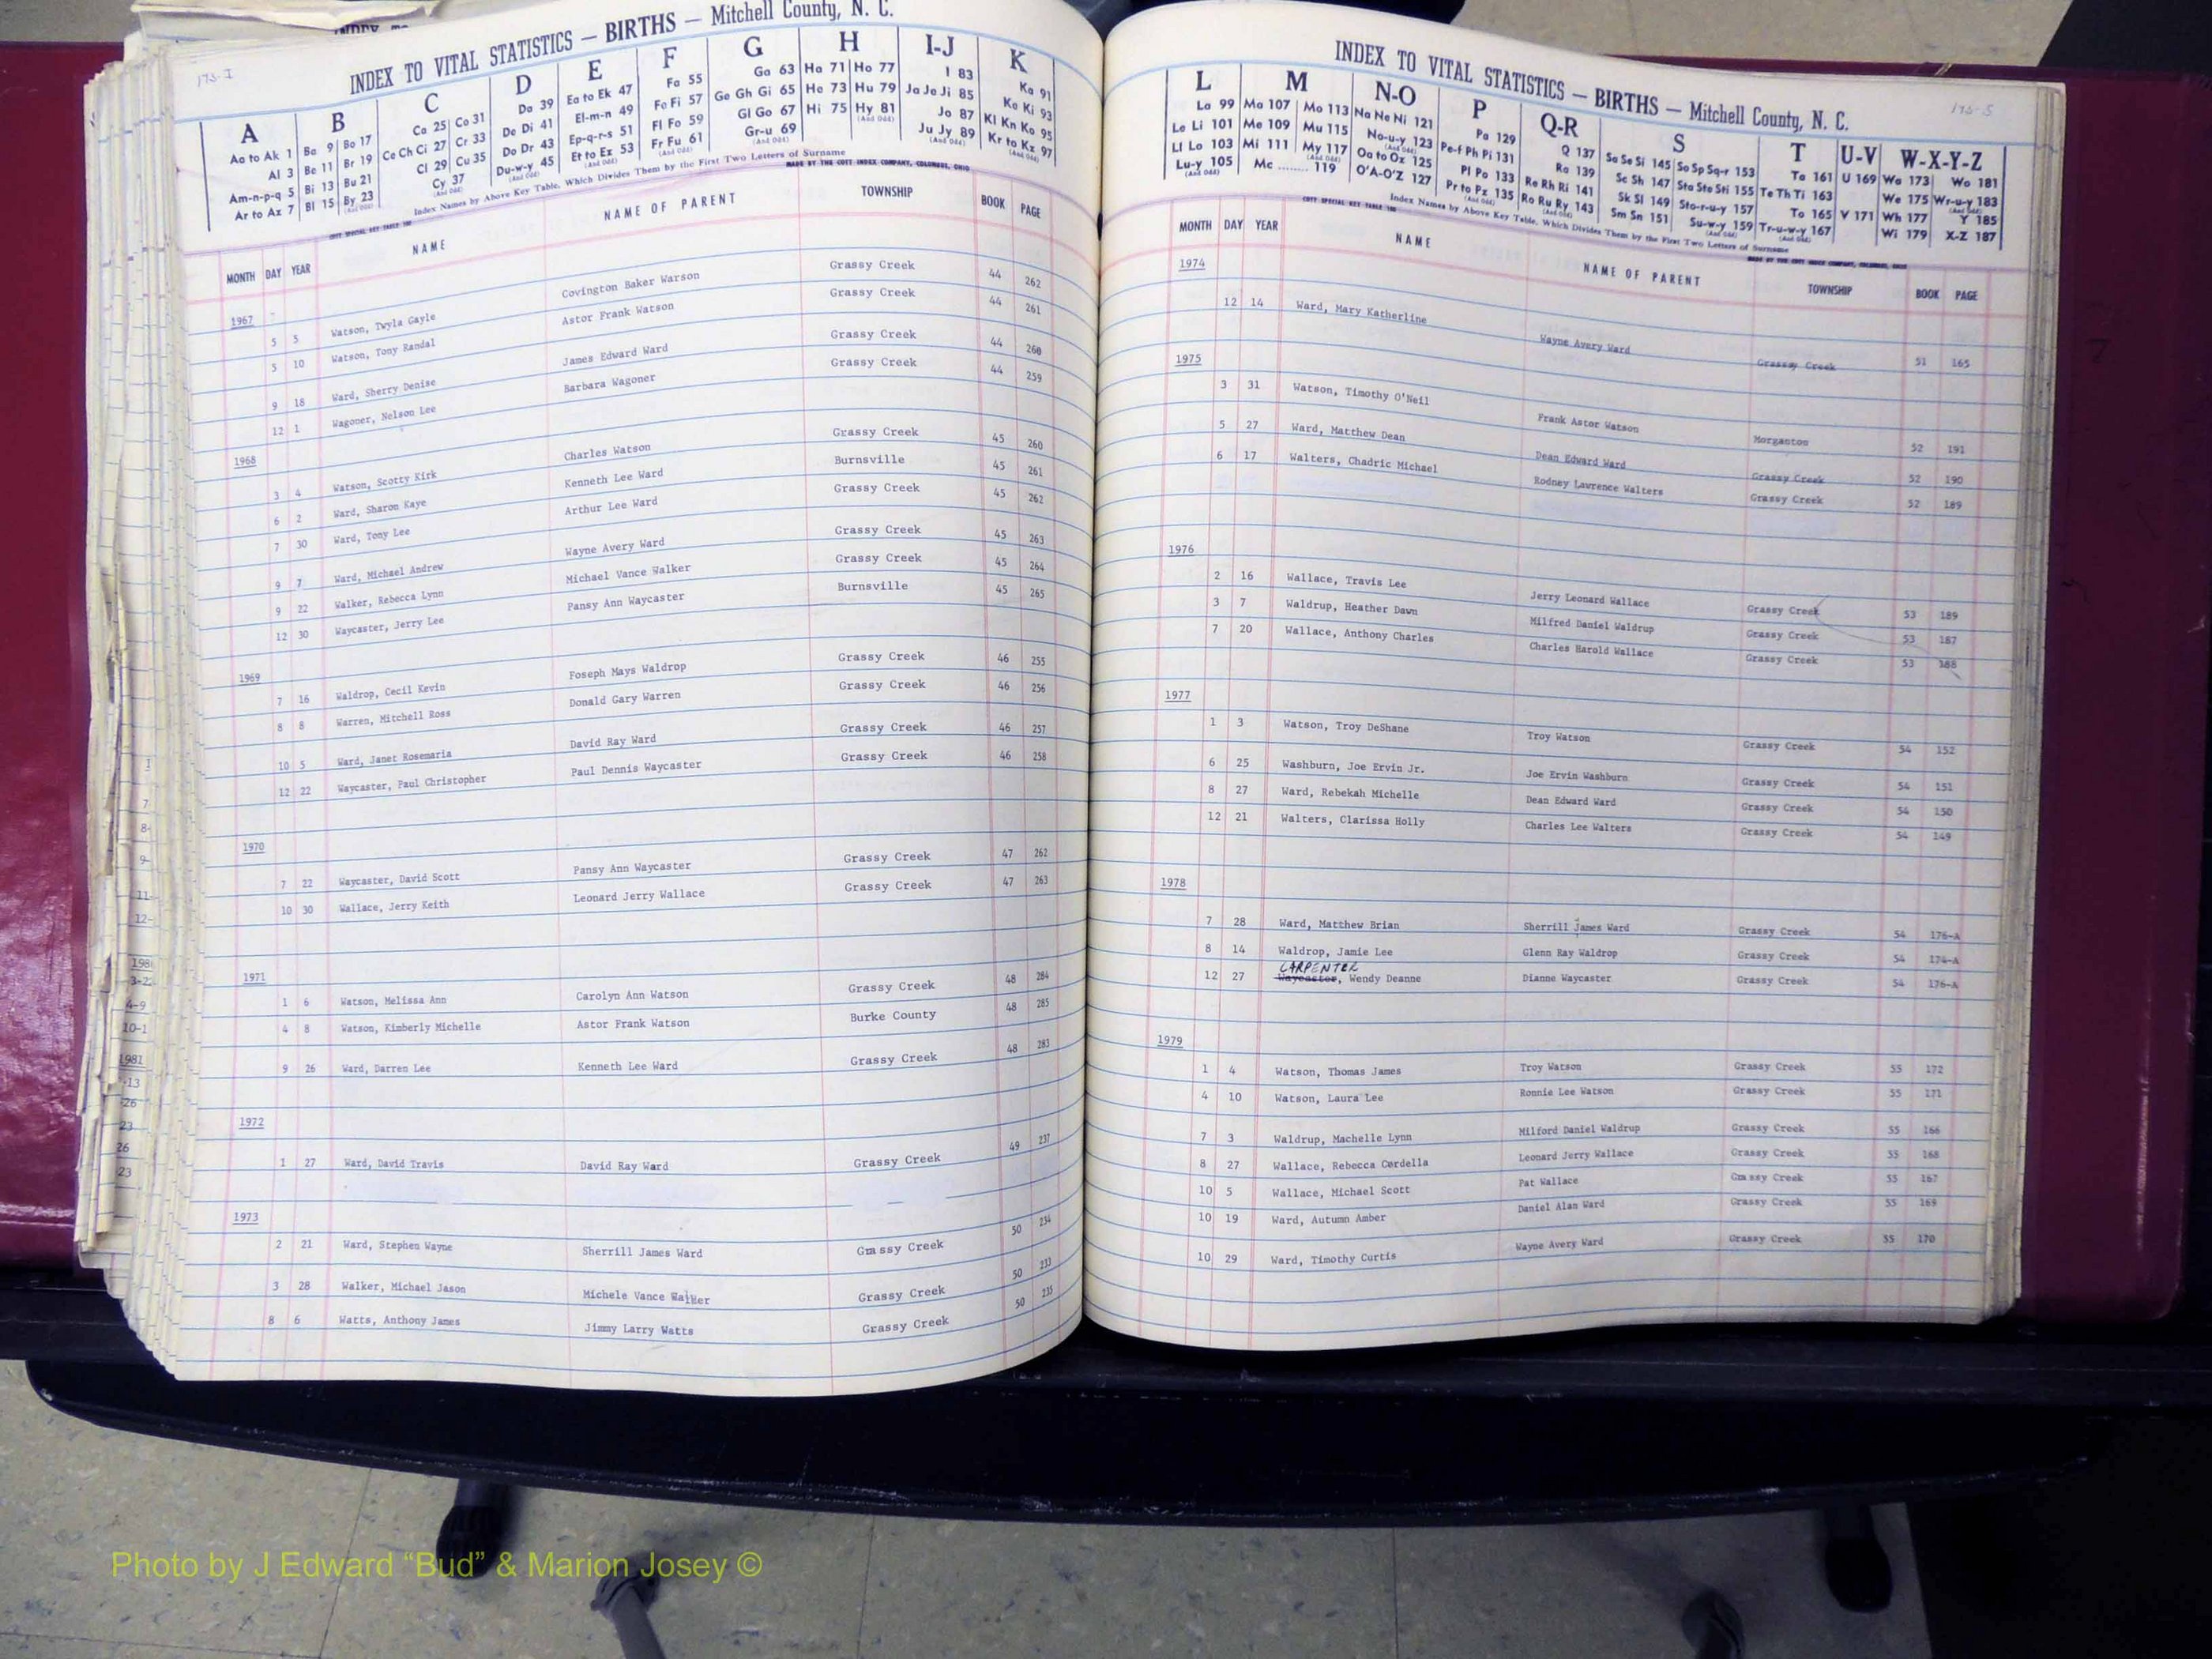 INDEX TO VITAL STATISTICS — BIRTHS — Mitchell County, N. C.
A B C D E F G H I-J K
Aa to Ak 1 Ba 9 Bo 17 Ca 25 Co 31 Da 39 Ea to Ek 47 Fa 55 Ga 63 Ha 71 Ho 77 I 83 Ka 91
Al 3 Be 11 Br 19 Ce Ch Ci 27 Cr 33 De Di 41 El-m-n 49 Fe Fi 57 Ge Gh Gi 65 He 73 Hu 79 Ja Je Ji 85 Ke Ki 93
Am-n-p-q 5 Bi 13 Bu 21 Cl 29 Cu 35 Do Dr 43 Ep-q-r-s 51 Fl Fo 59 Gl Go 67 Hi 75 Hy 81 Jo 87 Kl Kn Ko 95
Ar to Az 7 Bl 15 By 23 Cy 37 Du-w-y 45 Et to Ez 53 Fr Fu 61 Gr-u 69 Ju Jy 89 Kr to Kz 97
Index Names by Above Key Table, Which Divides Them by the First Two Letters of Surname
MADE BY THE COTT INDEX COMPANY, COLUMBUS, OHIO
MONTH DAY YEAR NAME NAME OF PARENT TOWNSHIP BOOK PAGE
1967
5 5 Watson, Twyla Gayle Covington Baker Warson Grassy Creek 44 262
5 10 Watson, Tony Randal Astor Frank Watson Grassy Creek 44 261
9 18 Ward, Sherry Denise James Edward Ward Grassy Creek 44 260
12 1 Wagoner, Nelson Lee Barbara Wagoner Grassy Creek 44 259
1968
3 4 Watson, Scotty Kirk Charles Watson Grassy Creek 45 260
6 2 Ward, Sharon Kaye Kenneth Lee Ward Burnsville 45 261
7 30 Ward, Tony Lee Arthur Lee Ward Grassy Creek 45 262
9 7 Ward, Michael Andrew Wayne Avery Ward Grassy Creek 45 263
9 22 Walker, Rebecca Lynn Michael Vance Walker Grassy Creek 45 264
12 30 Waycaster, Jerry Lee Pansy Ann Waycaster Burnsville 45 265
1969
7 16 Waldrop, Cecil Kevin Foseph Mays Waldrop Grassy Creek 46 255
8 8 Warren, Mitchell Ross Donald Gary Warren Grassy Creek 46 256
10 5 Ward, Janet Rosemaria David Ray Ward Grassy Creek 46 257
12 22 Waycaster, Paul Christopher Paul Dennis Waycaster Grassy Creek 46 258
1970
7 22 Waycaster, David Scott Pansy Ann Waycaster Grassy Creek 47 262
10 30 Wallace, Jerry Keith Leonard Jerry Wallace Grassy Creek 47 263
1971
1 6 Watson, Melissa Ann Carolyn Ann Watson Grassy Creek 48 284
4 8 Watson, Kimberly Michelle Astor Frank Watson Burke County 48 285
9 26 Ward, Darren Lee Kenneth Lee Ward Grassy Creek 48 283
1972
1 27 Ward, David Travis David Ray Ward Grassy Creek 49 237
1973
2 21 Ward, Stephen Wayne Sherrill James Ward Grassy Creek 50 234
3 28 Walker, Michael Jason Michele Vance Walker Grassy Creek 50 233
8 6 Watts, Anthony James Jimmy Larry Watts Grassy Creek 50 235
INDEX TO VITAL STATISTICS — BIRTHS — Mitchell County, N. C.
L M N-O P Q-R S T U-V W-X-Y-Z
La 99 Ma 107 Mo 113 Na Ne Ni 121 Pa 129 Q 137 Sa Se Si 145 So Sp Sq-r 153 Ta 161 U 169 Wa 173 Wo 181
Le Li 101 Me 109 Mu 115 No-u-y 123 Pe-f Ph Pi 131 Ra 139 Sc Sh 147 Sta Ste Sti 155 Te Th Ti 163 We 175 Wr-u-y 183
Ll Lo 103 Mi 111 My 117 Oa to Oz 125 Pl Po 133 Re Rh Ri 141 Sk Sl 149 Sto-r-u-y 157 To 165 V 171 Wh 177 Y 185
Lu-y 105 Mc ........ 119 O'A-O'Z 127 Pr to Pz 135 Ro Ru Ry 143 Sm Sn 151 Su-w-y 159 Tr-u-w-y 167 Wi 179 X-Z 187
Index Names by Above Key Table, Which Divides Them by the First Two Letters of Surname
MADE BY THE COTT INDEX COMPANY, COLUMBUS, OHIO
MONTH DAY YEAR NAME NAME OF PARENT TOWNSHIP BOOK PAGE
1974
12 14 Ward, Mary Katherline Wayne Avery Ward Grassy Creek 51 165
1975
3 31 Watson, Timothy O'Neil Frank Astor Watson Morganton 52 191
5 27 Ward, Matthew Dean Dean Edward Ward Grassy Creek 52 190
6 17 Walters, Chadric Michael Rodney Lawrence Walters Grassy Creek 52 189
1976
2 16 Wallace, Travis Lee Jerry Leonard Wallace Grassy Creek 53 189
3 7 Waldrup, Heather Dawn Milfred Daniel Waldrup Grassy Creek 53 187
7 20 Wallace, Anthony Charles Charles Harold Wallace Grassy Creek 53 188
1977
1 3 Watson, Troy DeShane Troy Watson Grassy Creek 54 152
6 25 Washburn, Joe Ervin Jr. Joe Ervin Washburn Grassy Creek 54 151
8 27 Ward, Rebekah Michelle Dean Edward Ward Grassy Creek 54 150
12 21 Walters, Clarissa Holly Charles Lee Walters Grassy Creek 54 149
1978
7 28 Ward, Matthew Brian Sherrill James Ward Grassy Creek 54 176-A
8 14 Waldrop, Jamie Lee Glenn Ray Waldrop Grassy Creek 54 174-A
CARPENTER
12 27 Waycaster, Wendy Deanne Dianne Waycaster Grassy Creek 54 176-A
1979
1 4 Watson, Thomas James Troy Watson Grassy Creek 55 172
4 10 Watson, Laura Lee Ronnie Lee Watson Grassy Creek 55 171
7 3 Waldrup, Machelle Lynn Milford Daniel Waldrup Grassy Creek 55 166
8 27 Wallace, Rebecca Cordella Leonard Jerry Wallace Grassy Creek 55 168
10 5 Wallace, Michael Scott Pat Wallace Grassy Creek 55 167
10 19 Ward, Autumn Amber Daniel Alan Ward Grassy Creek 55 169
10 29 Ward, Timothy Curtis Wayne Avery Ward Grassy Creek 55 170
Photo by J Edward “Bud” & Marion Josey ©